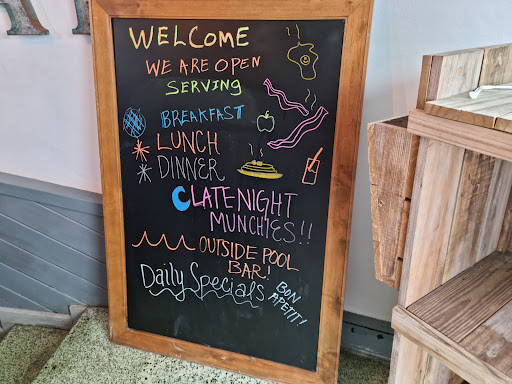 WELCOME
WE ARE OPEN
SERVING
BREAKFAST
LUNCH
DINNER
LATENIGHT
MUNCHIES!!
OUTSIDE POOL
BAR!
Daily Specials
BON
APETIT!